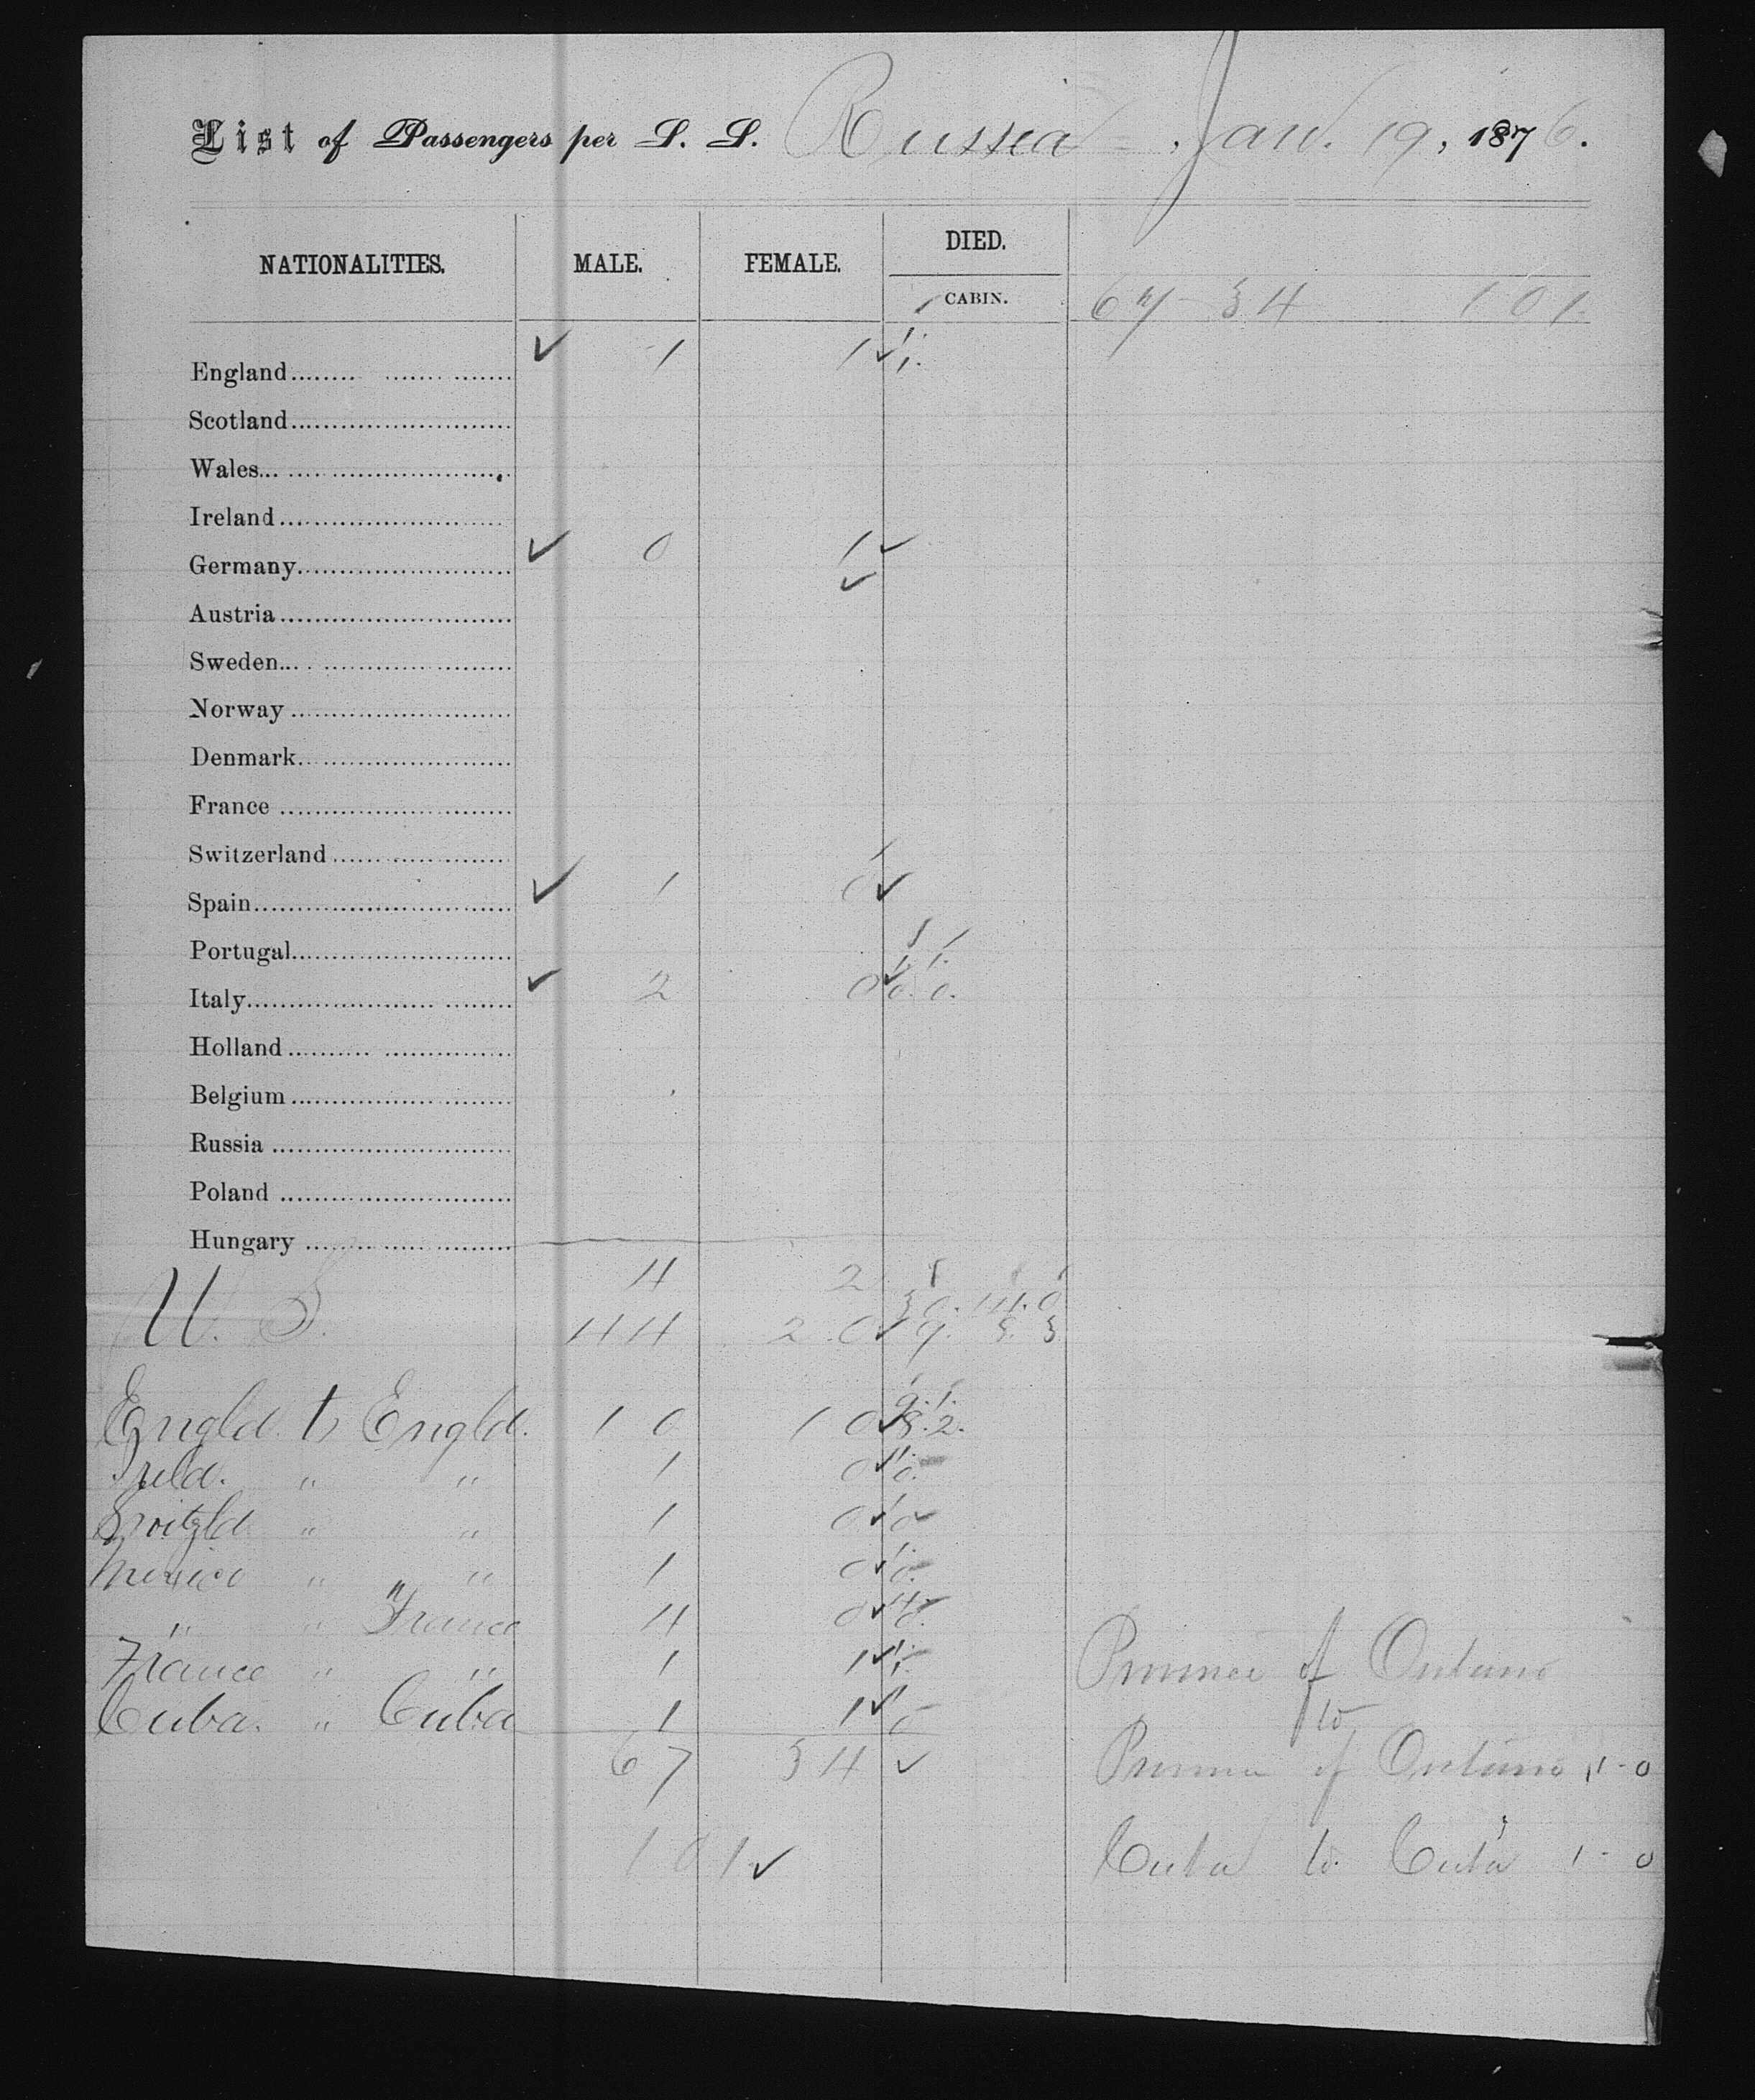 List of Passengers per S. S. Russia - Jan. 19, 1876.
NATIONALITIES. MALE. FEMALE. DIED.
CABIN. 67 - 34 101.
England ✓ 1 1 ✓ 1. 1.
Scotland
Wales
Ireland
Germany ✓ 0 1 ✓
✓
Austria
Sweden
Norway
Denmark
France
Switzerland
Spain ✓ 1 0 ✓
Portugal
Italy ✓ 2 0 ✓ 0. 0.
Holland
Belgium
Russia
Poland
Hungary
4 2
30. 14. 0
U. S. 44 20 ✓ 9. 8. 3
9. 1.
Engld. to Engld. 10 10 ✓ 8. 2.
Ireld. " " 1 0 ✓ 1. 0.
Switzld " " 1 0 ✓ 1 0
Mexico " " 1 0 ✓ 1. 0.
" " France 4 0 ✓ 4. 0.
France " " 1 1 ✓ 1. 1.
Cuba. " Cuba 1 1 ✓
67 34 ✓
101 ✓
Province of Ontario
to
Province of Ontario 1 - 0
Cuba to Cuba 1 - 0